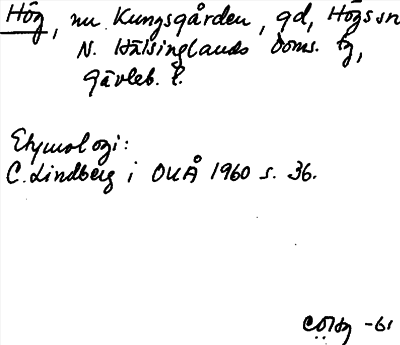 Hög, nu Kungsgården, gd, Högs sn
N. Hälsinglands doms. tg,
Gävleb. l.
Etymologi:
C. Lindberg i OUÅ 1960 s. 36.
-61